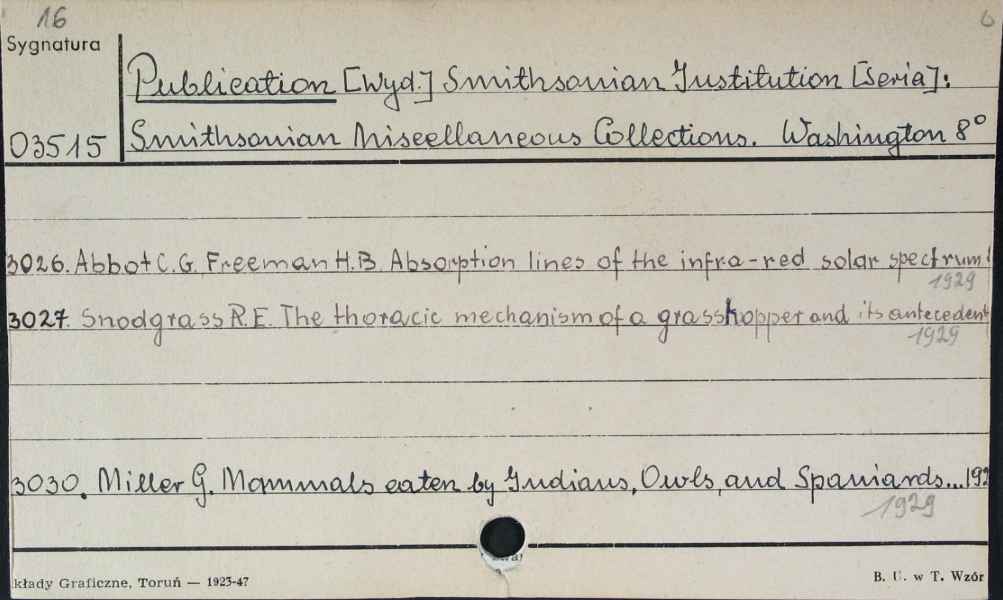 16
6
Sygnatura
Publication [Wyd.] Smithsonian Institution [Seria]:
03515
Smithsonian Miscellaneous Collections. Washington 8°
3026. Abbot C.G. Freeman H.B. Absorption lines of the infra-red solar spectrum
1929
3027. Snodgrass R.E. The thoracic mechanism of a grasshopper and its antecedent
1929
3030. Miller G. Mammals eaten by Indians, Owls, and Spaniards... 192
1929
kłady Graficzne, Toruń — 1923-47
B. U. w T. Wzór